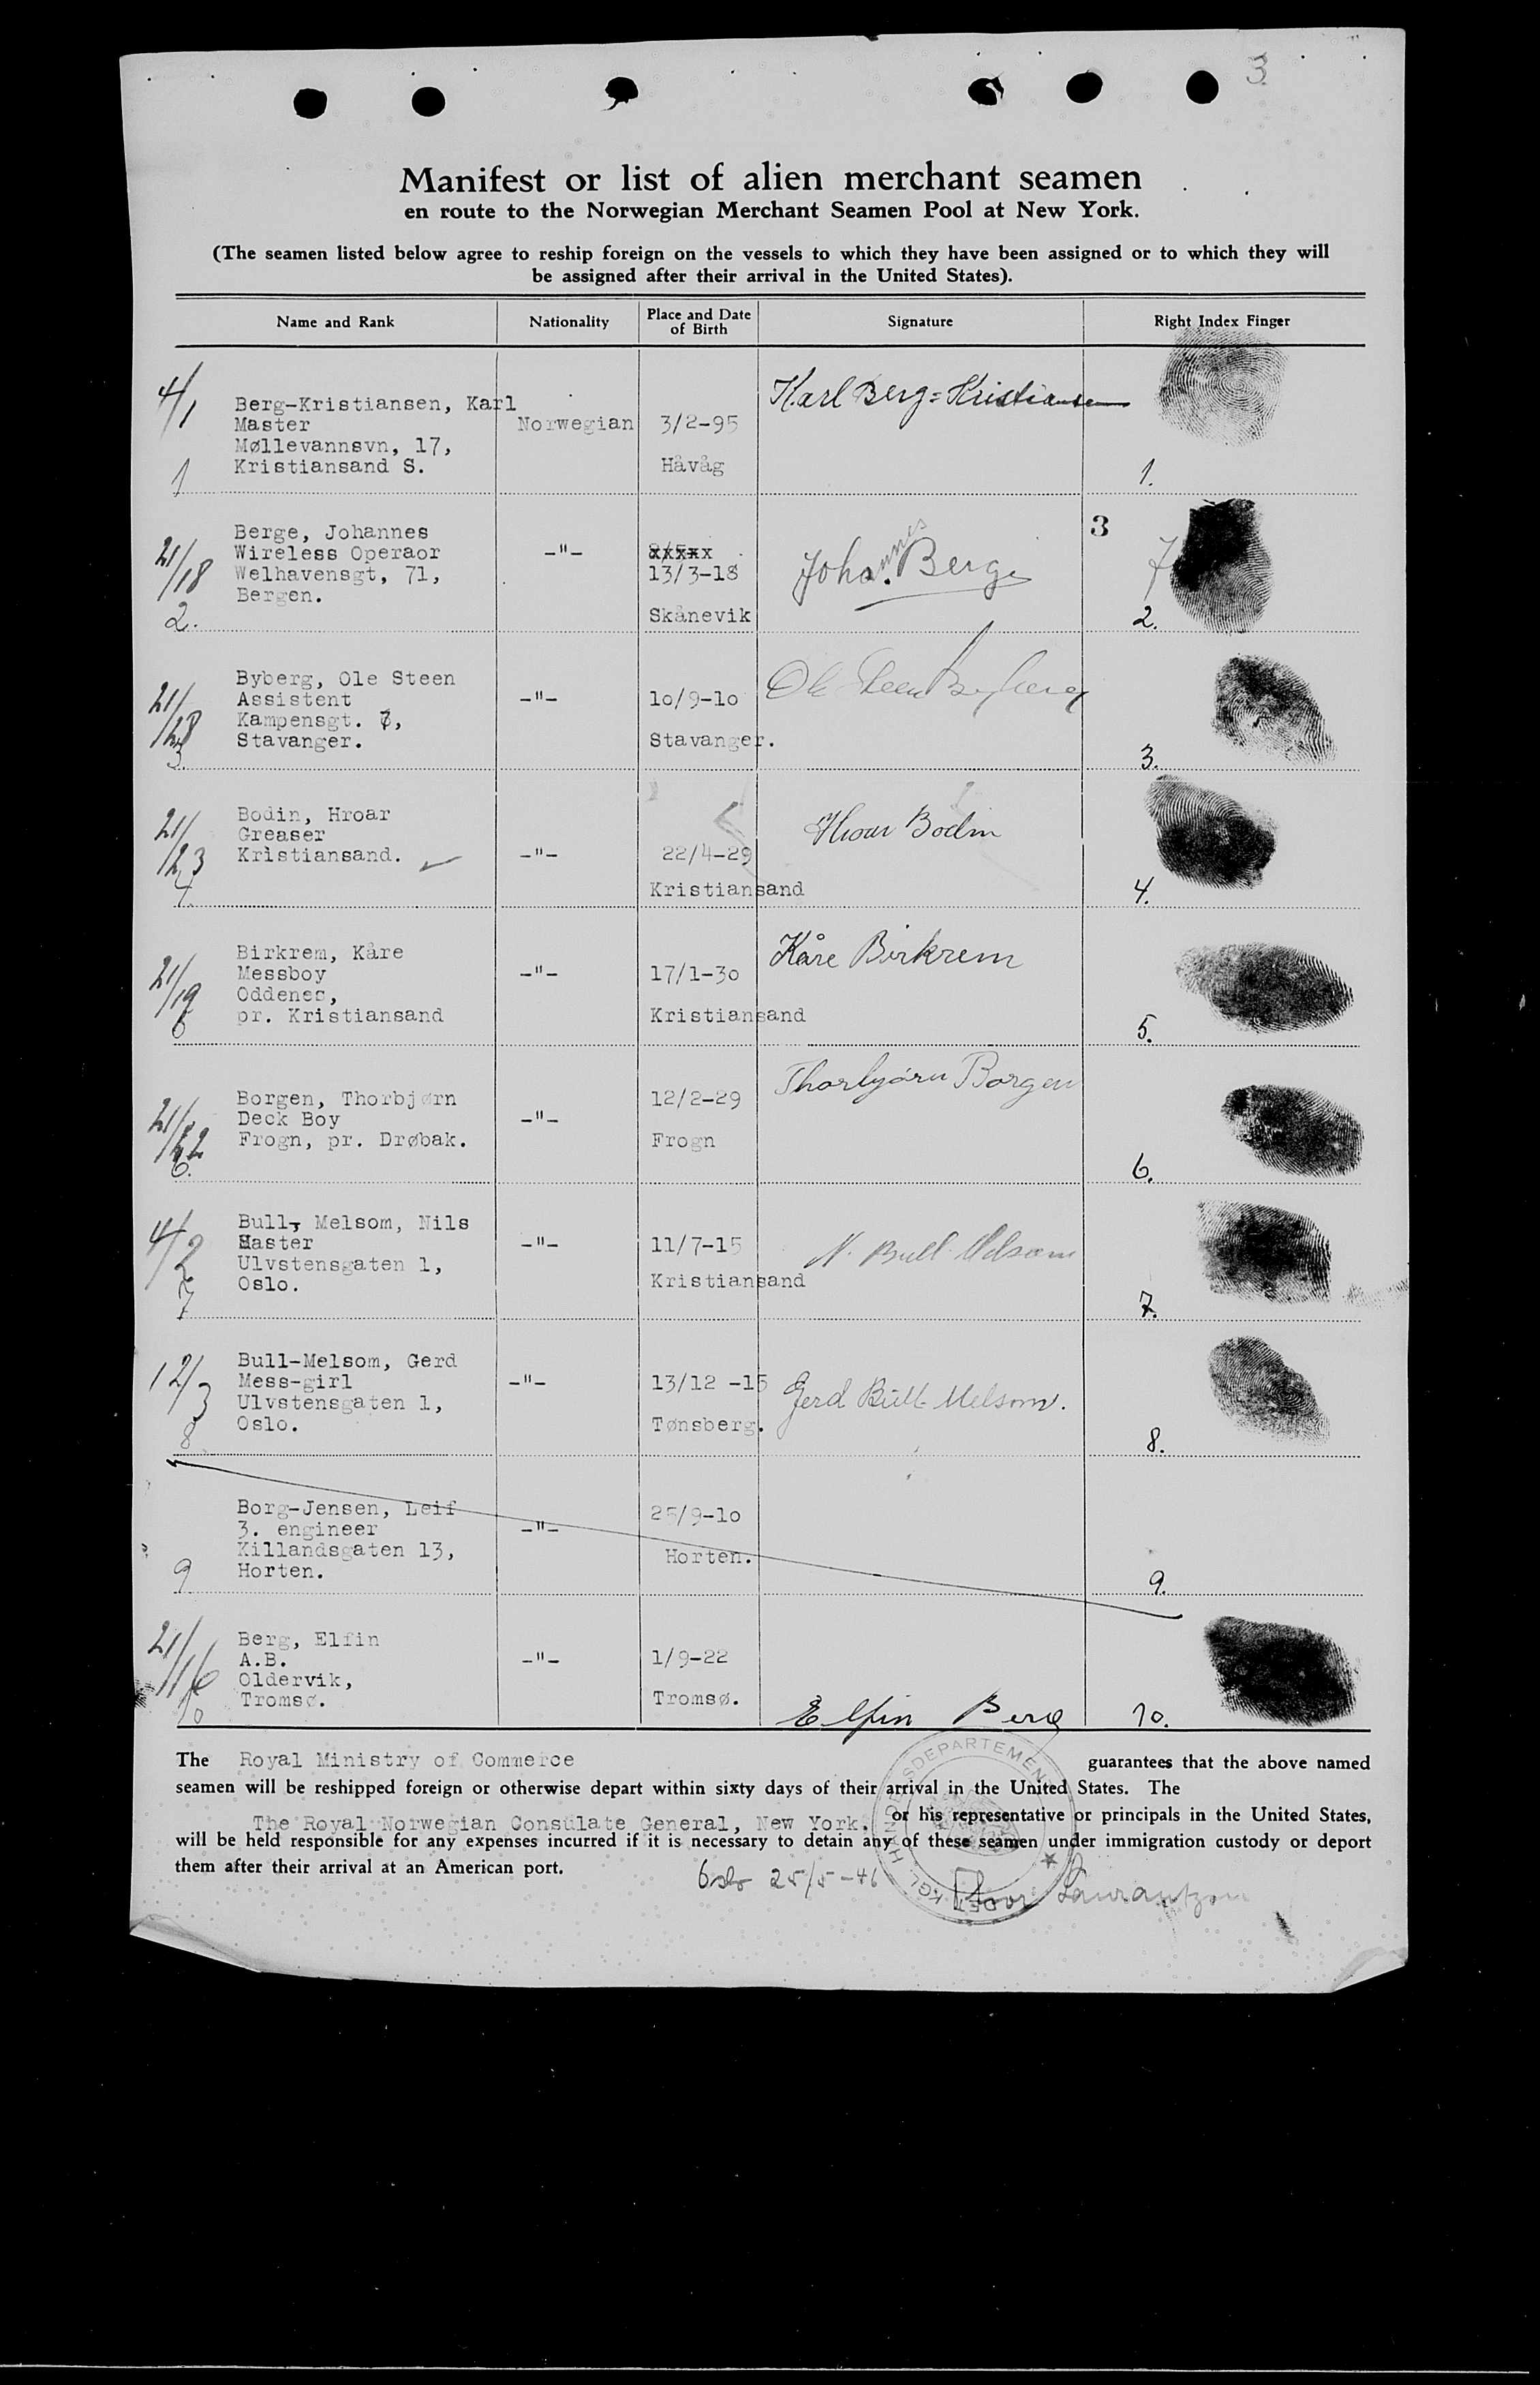 3
Manifest or list of alien merchant seamen
en route to the Norwegian Merchant Seamen Pool at New York.
(The seamen listed below agree to reship foreign on the vessels to which they have been assigned or to which they will
be assigned after their arrival in the United States).
Name and Rank Nationality Place and Date of Birth Signature Right Index Finger
4/1
Berg-Kristiansen, Karl Karl Berg=Kristiansen
Master Norwegian 3/2-95
Møllevannsvn, 17,
Kristiansand S. Håvåg
1 1.
Berge, Johannes 3
Wireless Operaor -"- xxxxx
21/18 Welhavensgt, 71, 13/3-18 Johannes Berge 7
Bergen.
2. Skånevik 2.
Byberg, Ole Steen Ole Steen Byberg
21/ Assistent -"- 10/9-10
Kampensgt. 7,
Stavanger. Stavanger.
3. 3.
Bodin, Hroar Hroar Bodin
21/23 Greaser
Kristiansand. -"- 22/4-29
4. Kristiansand 4.
Birkrem, Kåre Kåre Birkrem
21/19 Messboy -"- 17/1-30
Oddenes,
pr. Kristiansand Kristiansand
5.
Borgen, Thorbjørn 12/2-29 Thorbjørn Borgen
21/ Deck Boy -"-
Frogn, pr. Drøbak. Frogn
6. 6.
Bull, Melsom, Nils
4/2 Master -"- 11/7-15 N. Bull-Melsom
Ulvstensgaten 1,
Oslo. Kristiansand
7 7.
Bull-Melsom, Gerd
12/3 Mess-girl -"- 13/12 -15 Gerd Bull-Melsom.
Ulvstensgaten 1,
Oslo. Tønsberg.
8. 8.
Borg-Jensen, Leif 25/9-10
3. engineer -"-
Killandsgaten 13, Horten.
Horten.
9 9.
Berg, Elfin
21/16 A.B. -"- 1/9-22
Oldervik,
Tromsø. Tromsø. Elfin Berg
10 10.
The Royal Ministry of Commerce guarantees that the above named
seamen will be reshipped foreign or otherwise depart within sixty days of their arrival in the United States. The
The Royal Norwegian Consulate General, New York. or his representative or principals in the United States,
will be held responsible for any expenses incurred if it is necessary to detain any of these seamen under immigration custody or deport
them after their arrival at an American port.
Oslo 25/5-46
DET KGL HANDELSDEPARTEMENT